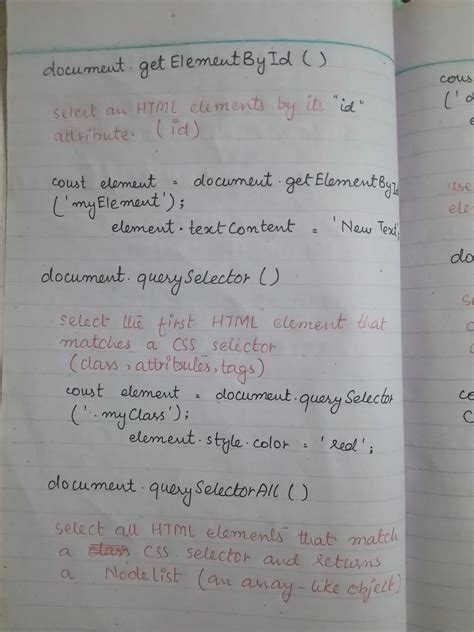 document.getElementById ()
select an HTML elements by its "id"
attribute. (id)
const element = document.getElementById
('myElement');
element.textContent = 'New Text';
document.querySelector ()
select the first HTML element that
matches a CSS selector
(class, attributes, tags)
const element = document.querySelector
('.myClass');
element.style.color = 'red';
document.querySelectorAll ()
select all HTML elements that match
a CSS selector and returns
a Nodelist (an array-like object)
cons
('d
use
ele
do
se
co